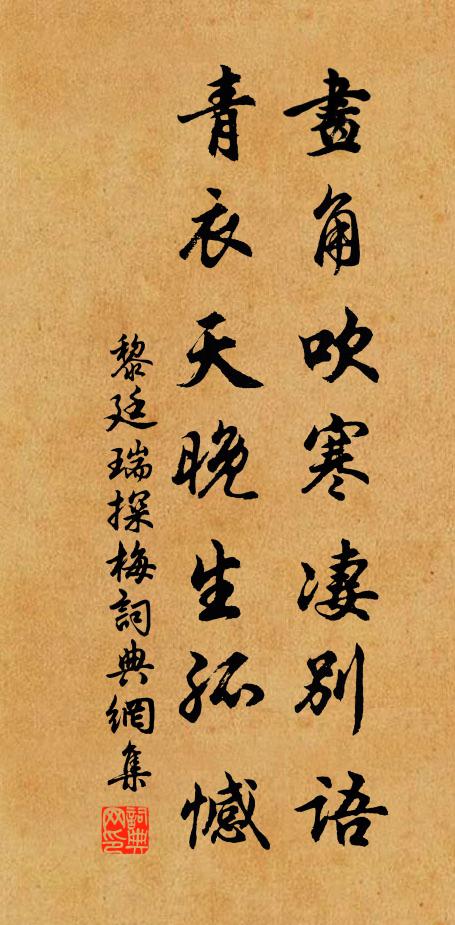 畫角吹寒凄別語
青衣天晚生孤憾
黎廷瑞探梅詞典網集
詞典网印